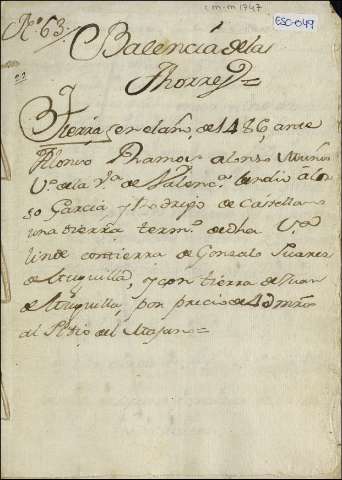 c m-m 1747
ESC-049
Nº 63.
Balencia de las
Thorres=
22
Tierra en el añ. de 1486, ante
Alonso Ramos alonso Muños
Vº de la Vª de Valencª bendio alon
so Garcia, y Rodrigo de Castellanos
una tierra termº de dha Vª
linde con tierra de Gonzalo Suares
de Muquilla, y con tierra de Juan
de Muquilla, por precio de mrs
al Sitio del Majano=